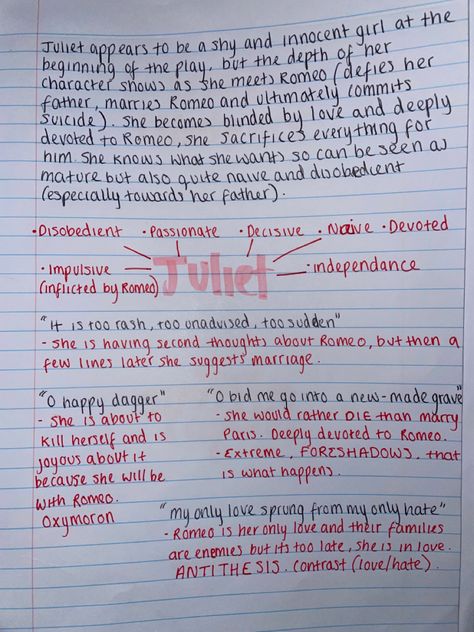 Juliet appears to be a shy and innocent girl at the
beginning of the play, but the depth of her
character shows as she meets Romeo (defies her
father, marries Romeo and ultimately commits
suicide). She becomes blinded by love and deeply
devoted to Romeo, she sacrifices everything for
him. She knows what she wants so can be seen as
mature but also quite naive and disobedient
(especially towards her father).
·Disobedient ·Passionate ·Decisive ·Naive ·Devoted
·Impulsive Juliet ·independance
(inflicted by Romeo)
"It is too rash, too unadvised, too sudden"
- She is having second thoughts about Romeo, but then a
few lines later she suggests marriage.
"O happy dagger"
- She is about to
kill herself and is
joyous about it
because she will be
with Romeo.
Oxymoron
"O bid me go into a new-made grave"
- She would rather DIE than marry
Paris. Deeply devoted to Romeo.
- Extreme, FORESHADOWS, that
is what happens.
"my only love sprung from my only hate"
- Romeo is her only love and their families
are enemies but its too late, she is in love.
ANTITHESIS. contrast (love/hate).